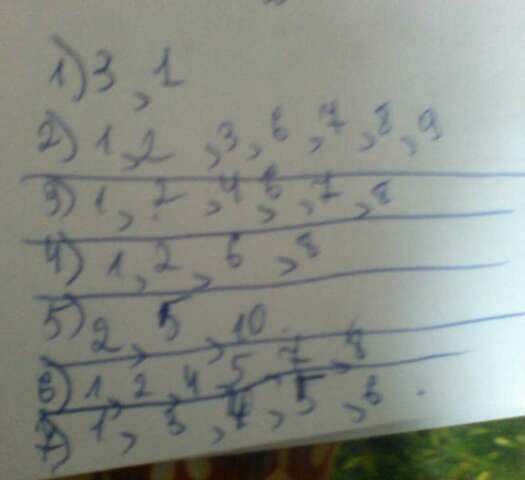 1) 3, 1
2) 1, 2, 3, 6, 7, 8, 9
3) 1, 2, 4, 6, 7, 8
4) 1, 2, 6, 8
5) 2, 5, 10
6) 1, 2, 4, 5, 7, 8
7) 1, 3, 4, 5, 6.